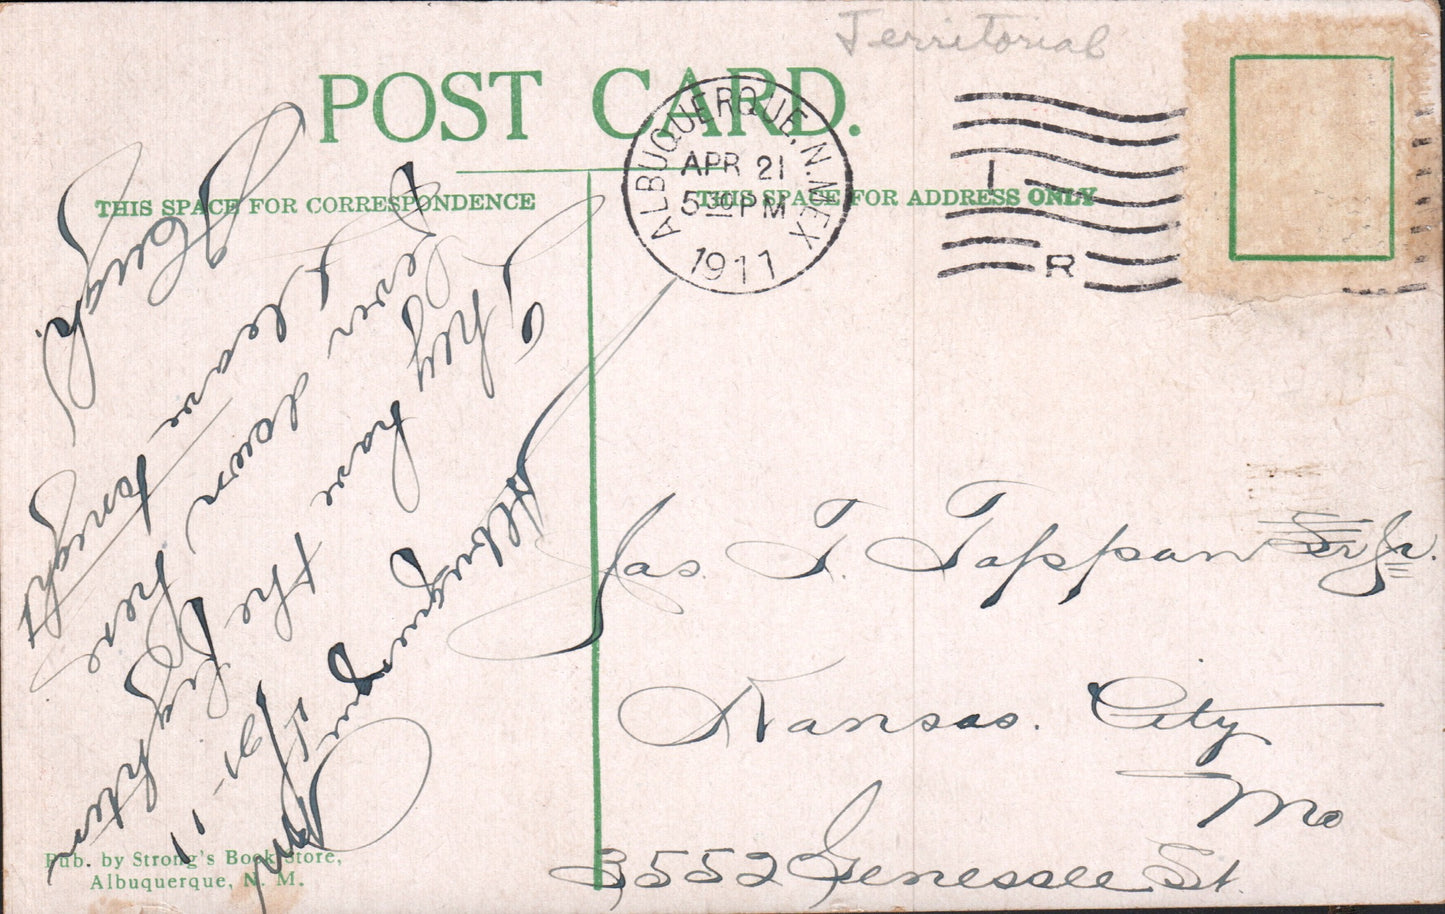 Territorial
POST CARD.
ALBUQUERQUE, N. MEX
APR 21
5 30 PM
1911
I R
THIS SPACE FOR CORRESPONDENCE
THIS SPACE FOR ADDRESS ONLY
Albuquerque
N M
4/21-11
They have the
fever down here
I leave tonight
Hugh
Jas. T. Tappan Sr Jr.
Kansas. City
Mo
3552 Genessee St.
Pub. by Strong's Book Store,
Albuquerque, N. M.